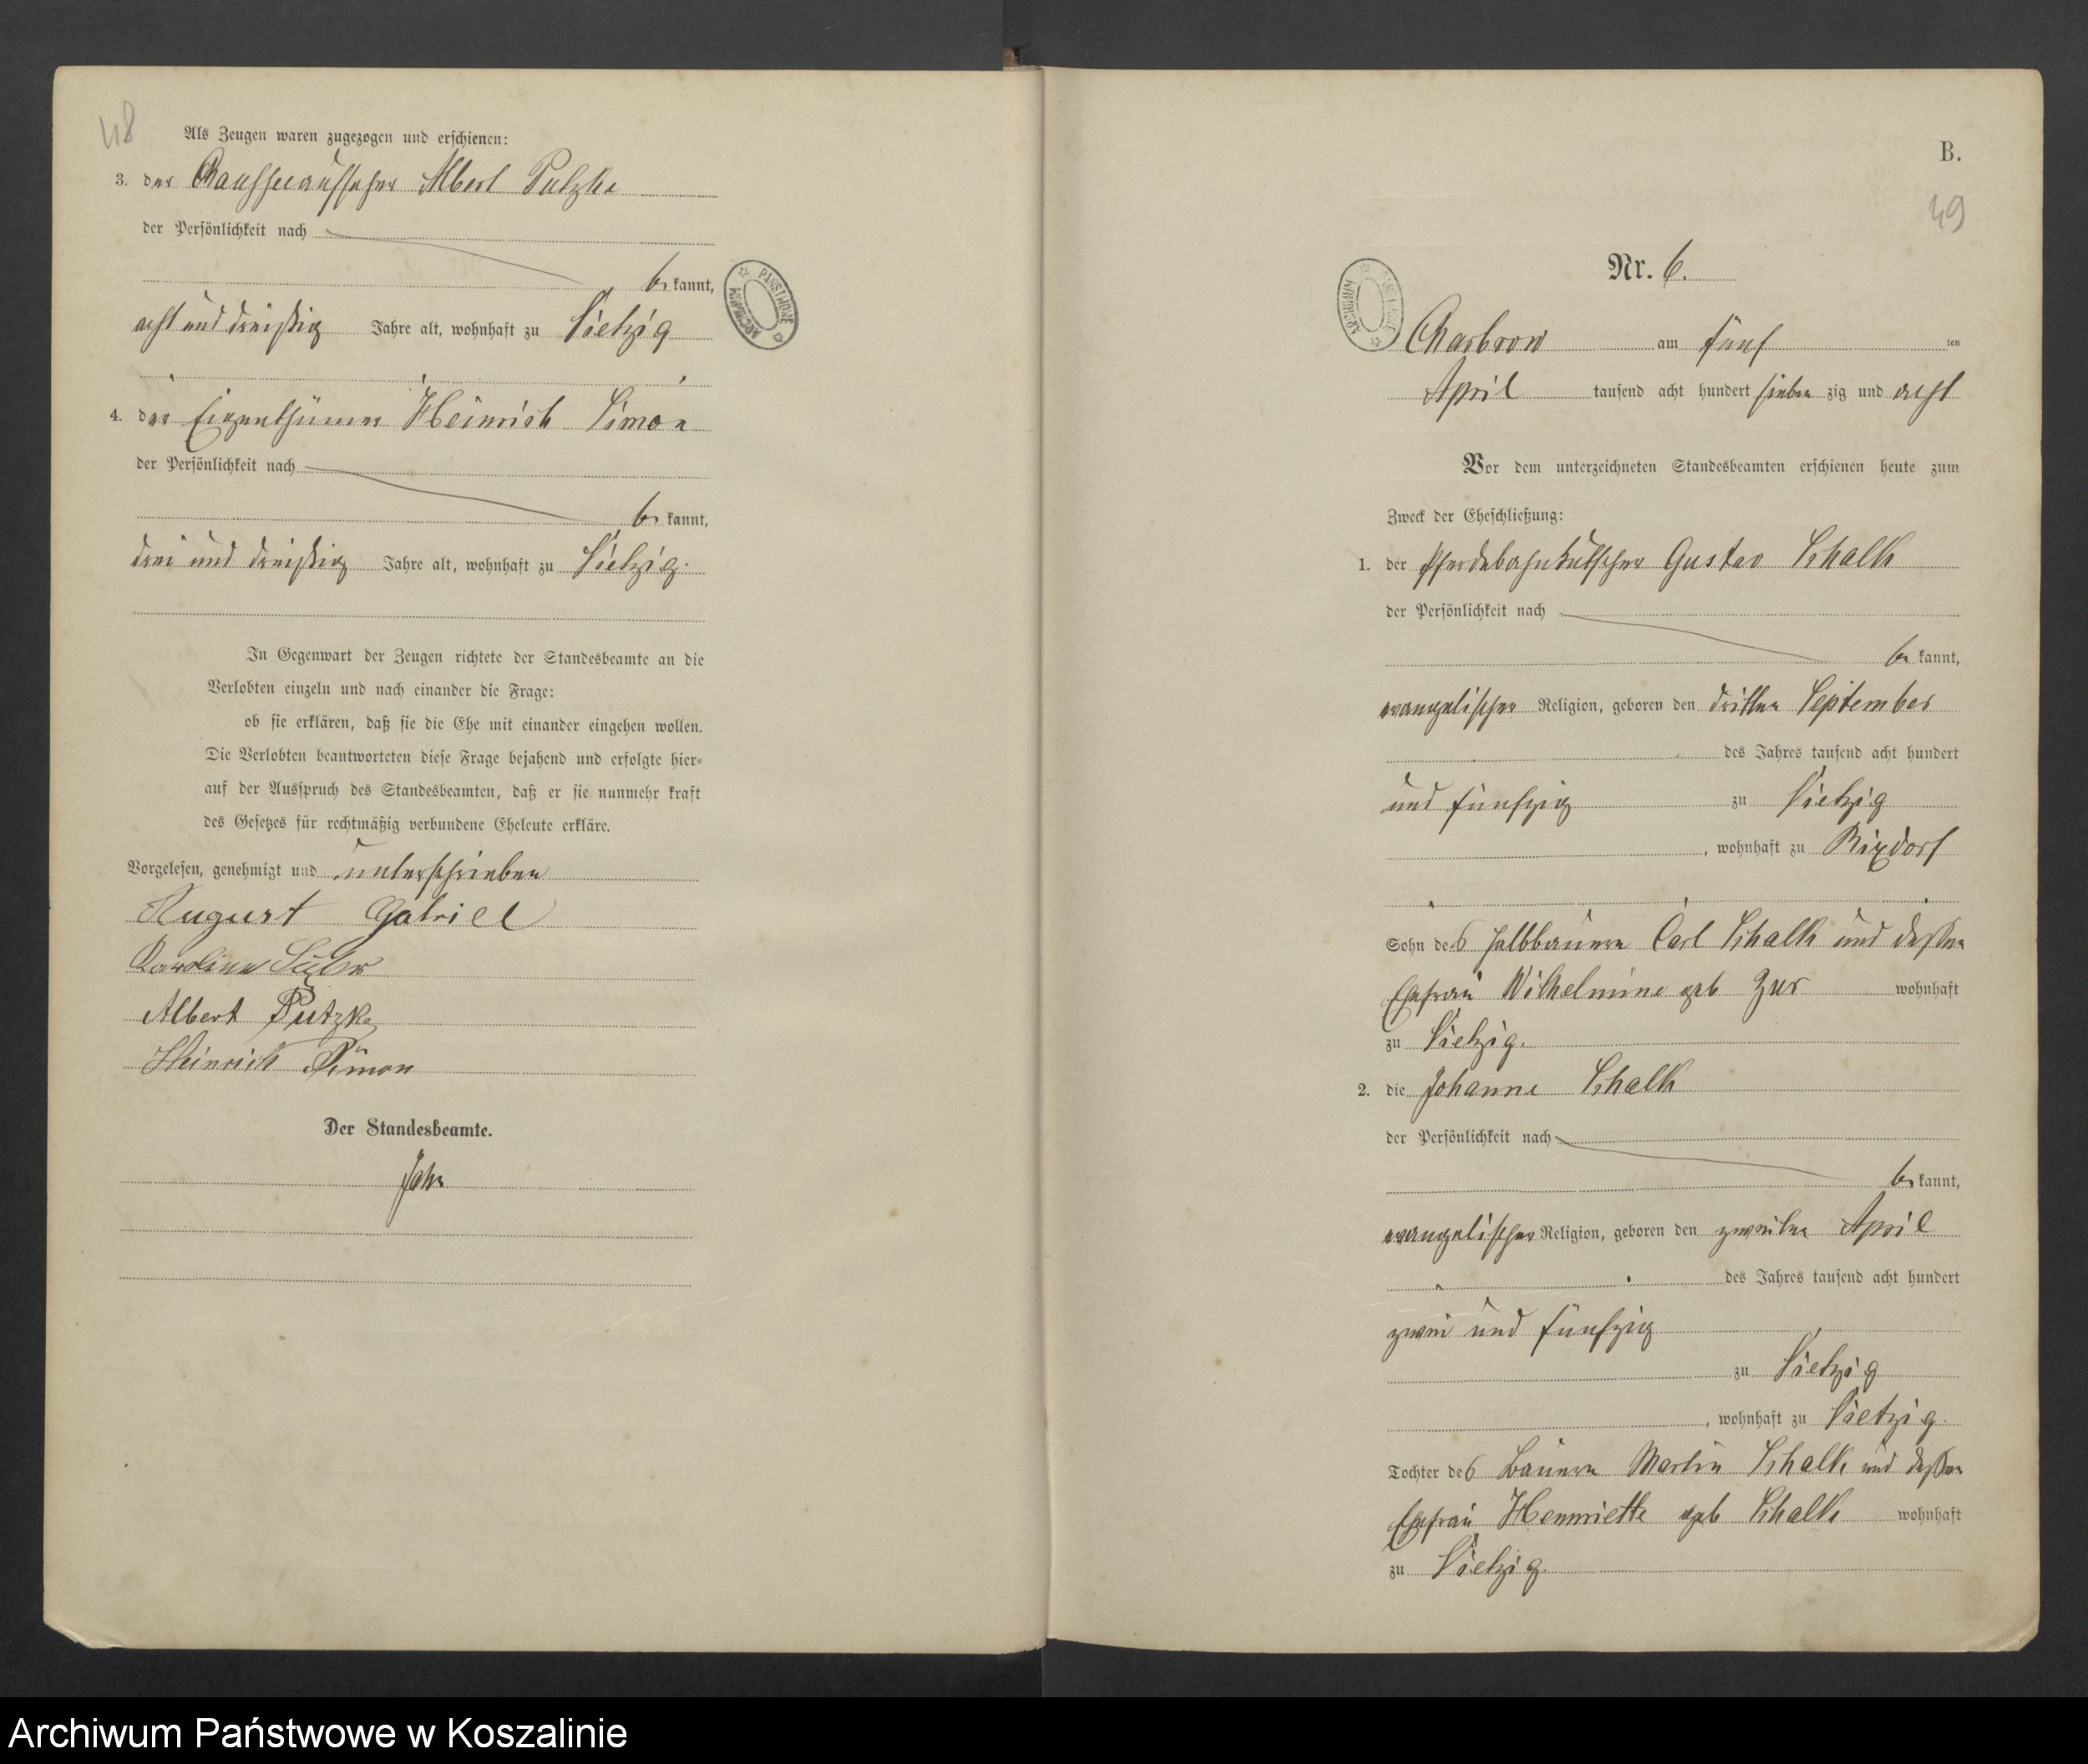 48
Als Zeugen waren zugezogen und erschienen:
3. der Chausseeaufseher Albert Putzke
der Persönlichkeit nach
be kannt,
acht und dreißig Jahre alt, wohnhaft zu Vietzig
4. der Eigenthümer Heinrich Simon
der Persönlichkeit nach
be kannt,
drei und dreißig Jahre alt, wohnhaft zu Vietzig.
In Gegenwart der Zeugen richtete der Standesbeamte an die
Verlobten einzeln und nach einander die Frage:
ob sie erklären, daß sie die Ehe mit einander eingehen wollen.
Die Verlobten beantworteten diese Frage bejahend und erfolgte hier-
auf der Ausspruch des Standesbeamten, daß er sie nunmehr kraft
des Gesetzes für rechtmäßig verbundene Eheleute erkläre.
Vorgelesen, genehmigt und unterschrieben
August Gabriel
Karoline
Albert Putzke
Heinrich Simon
Der Standesbeamte.
PAŃSTWOWE ARCHIWUM
B.
49
Nr. 6.
ARCHIWUM
Charbrow am fünf ten
April tausend acht hundert sieben zig und acht
Vor dem unterzeichneten Standesbeamten erschienen heute zum
Zweck der Eheschließung:
1. der Pferdebahnkutscher Gustav Schalk
der Persönlichkeit nach
be kannt,
evangelischer Religion, geboren den dritten September
des Jahres tausend acht hundert
und fünfzig zu Vietzig
, wohnhaft zu Rixdorf
Sohn des Halbbauern Carl Schalk und dessen
Ehefrau Wilhelmine geb Zur wohnhaft
zu Vietzig.
2. die Johanne Schalk
der Persönlichkeit nach
be kannt,
evangelischer Religion, geboren den zweiten April
des Jahres tausend acht hundert
zwei und fünfzig
zu Vietzig
, wohnhaft zu Vietzig.
Tochter des Bauern Martin Schalk und dessen
Ehefrau Henriette geb Schalk wohnhaft
zu Vietzig.
Archiwum Państwowe w Koszalinie